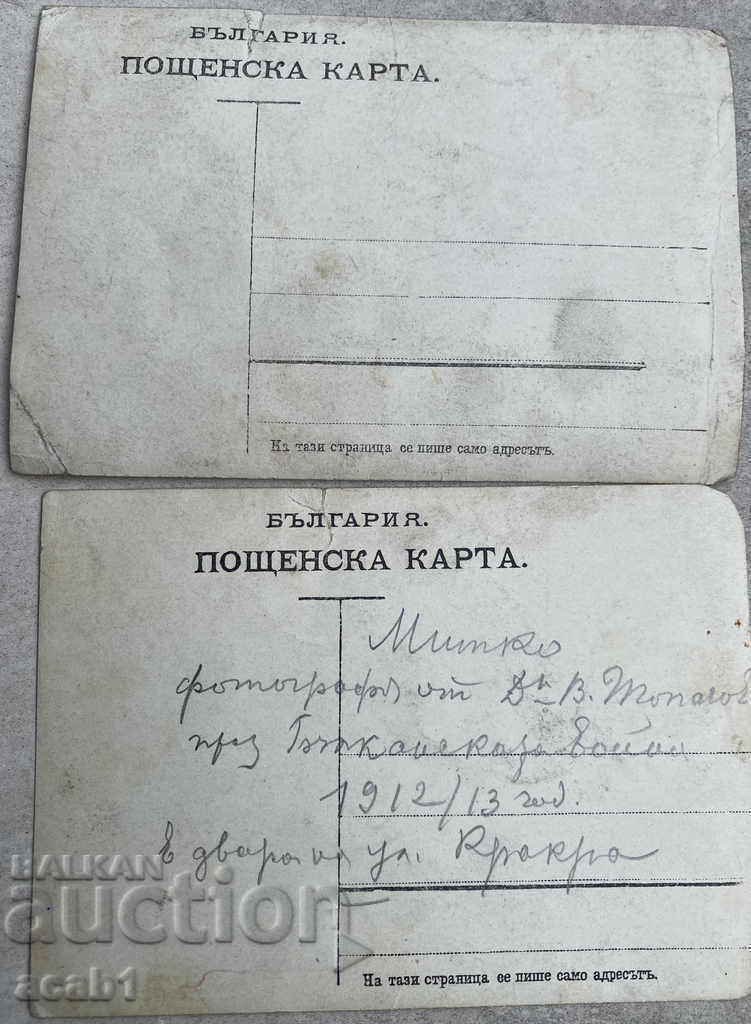 БЪЛГАРИЯ.
ПОЩЕНСКА КАРТА.
На тази страница се пише само адресътъ.
БЪЛГАРИЯ.
ПОЩЕНСКА КАРТА.
Митко
фотографя от Дъ В. Топалов
през Балканската война
1912/13 год.
в двора на ул. Кракра
На тази страница се пише само адресътъ.
BALKAN
auction
acab1